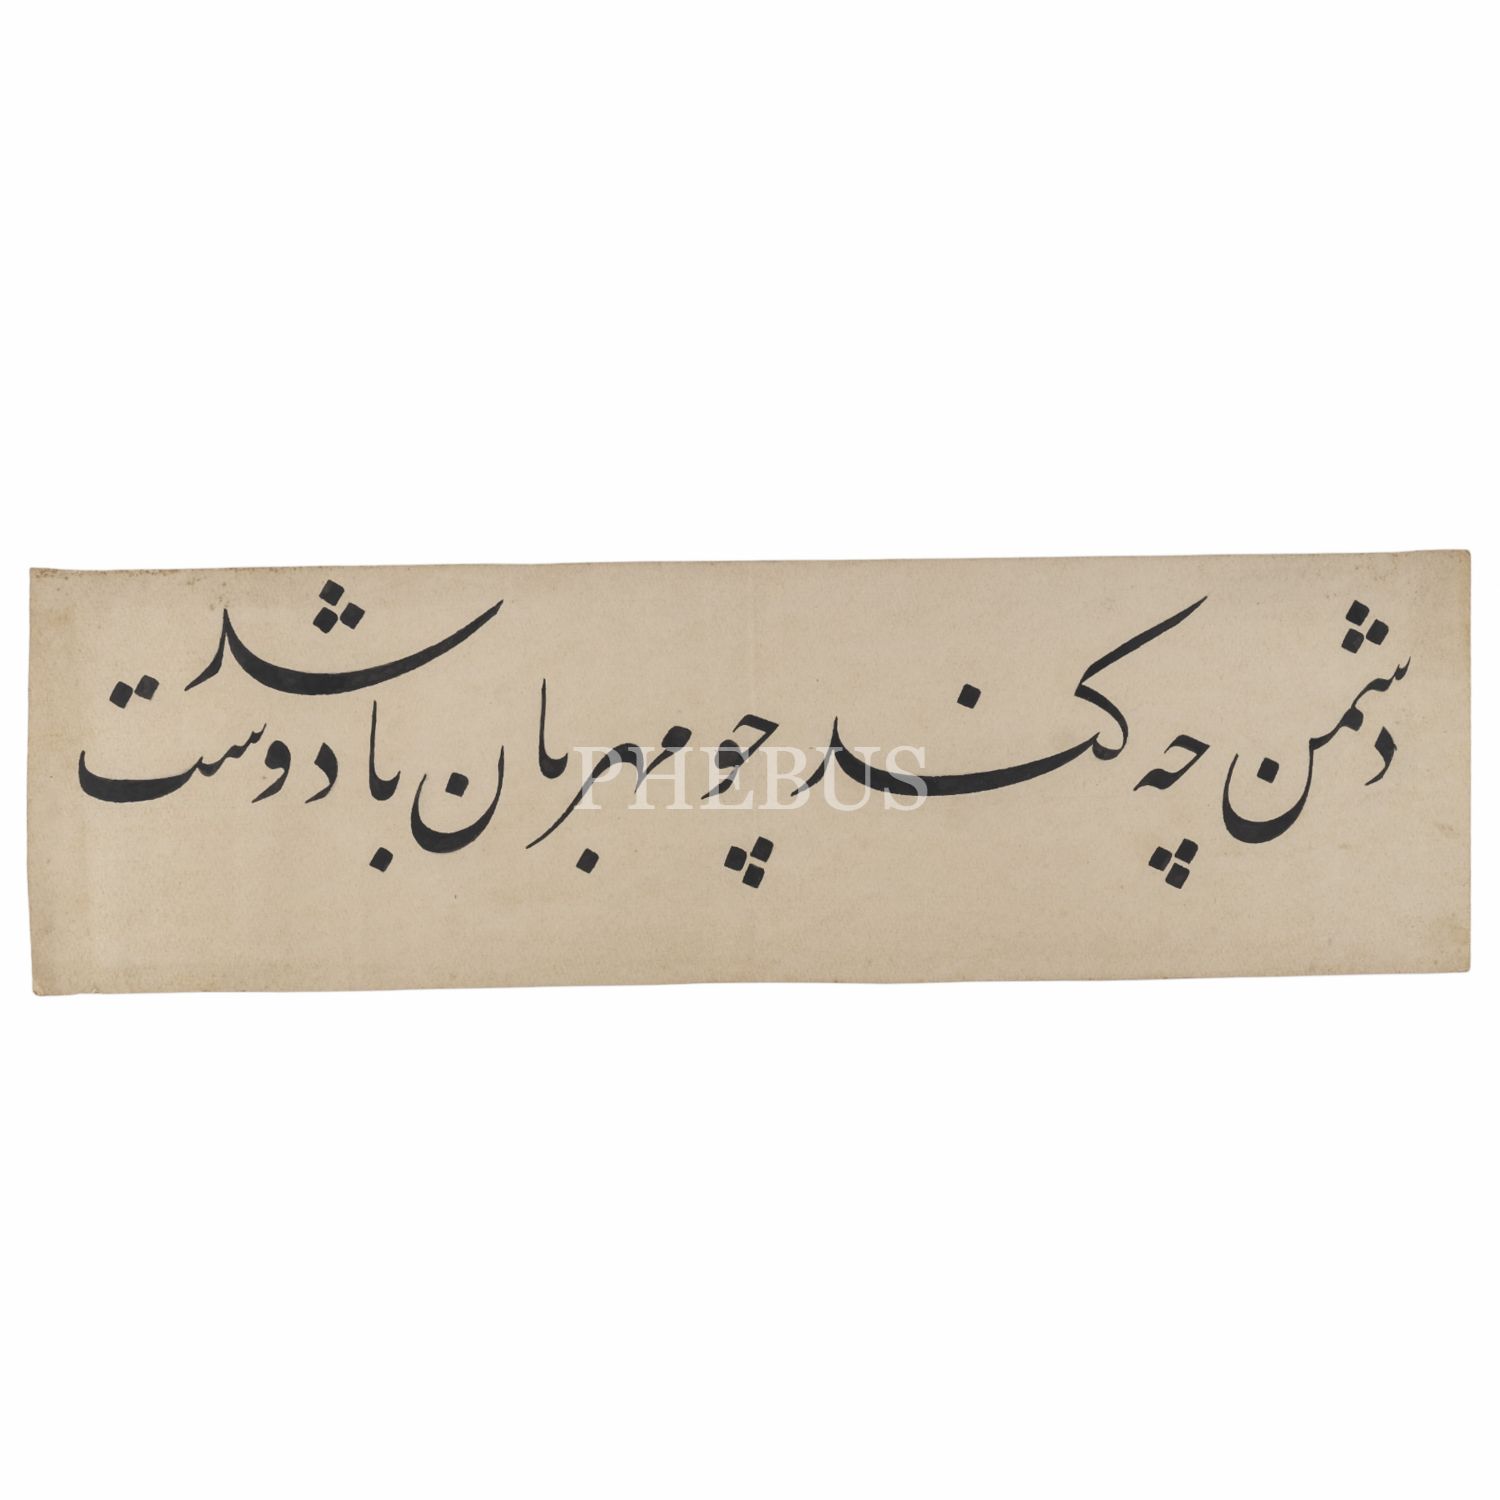 دشمن چه کند چو مهربان باشد دوست
PHEBUS